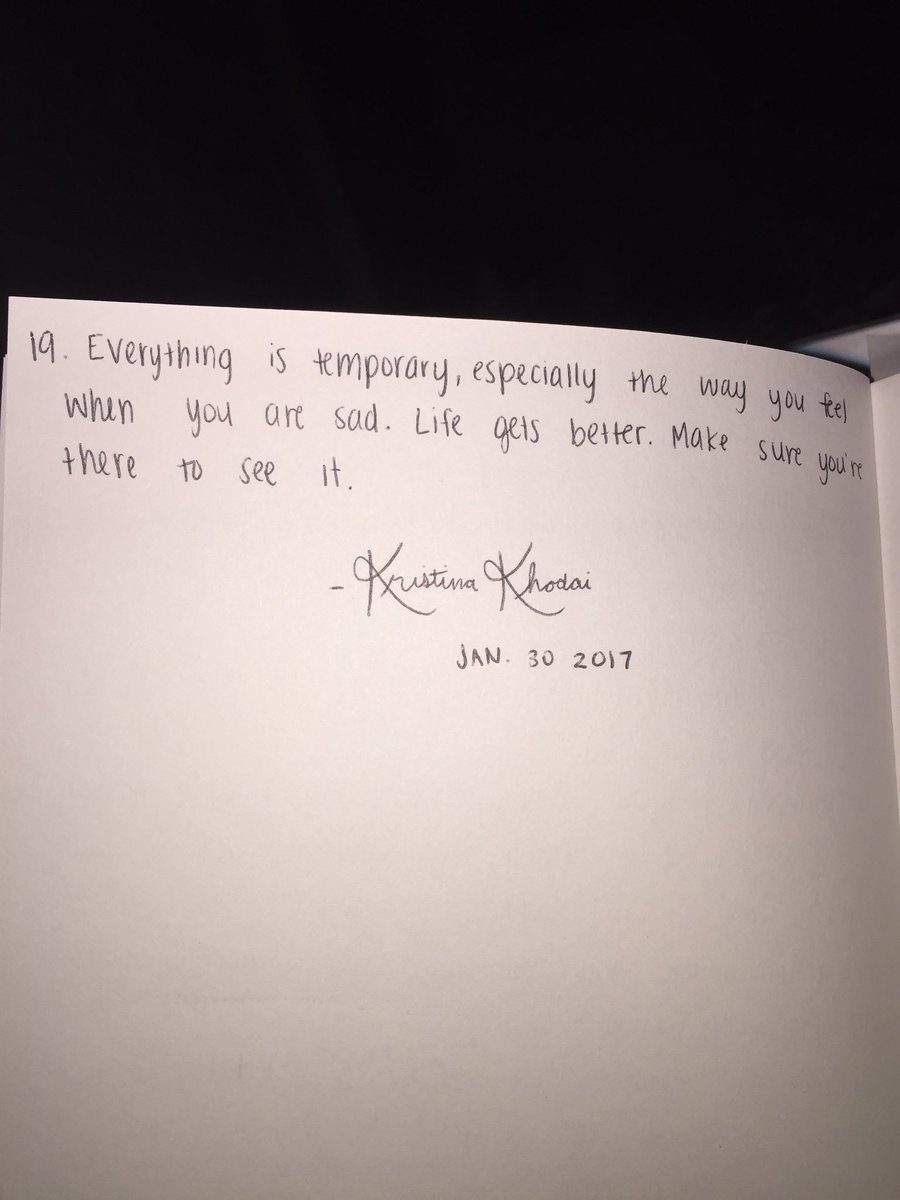 19. Everything is temporary, especially the way you feel
when you are sad. Life gets better. Make sure you're
there to see it.
- Kristina Khodai
JAN. 30 2017